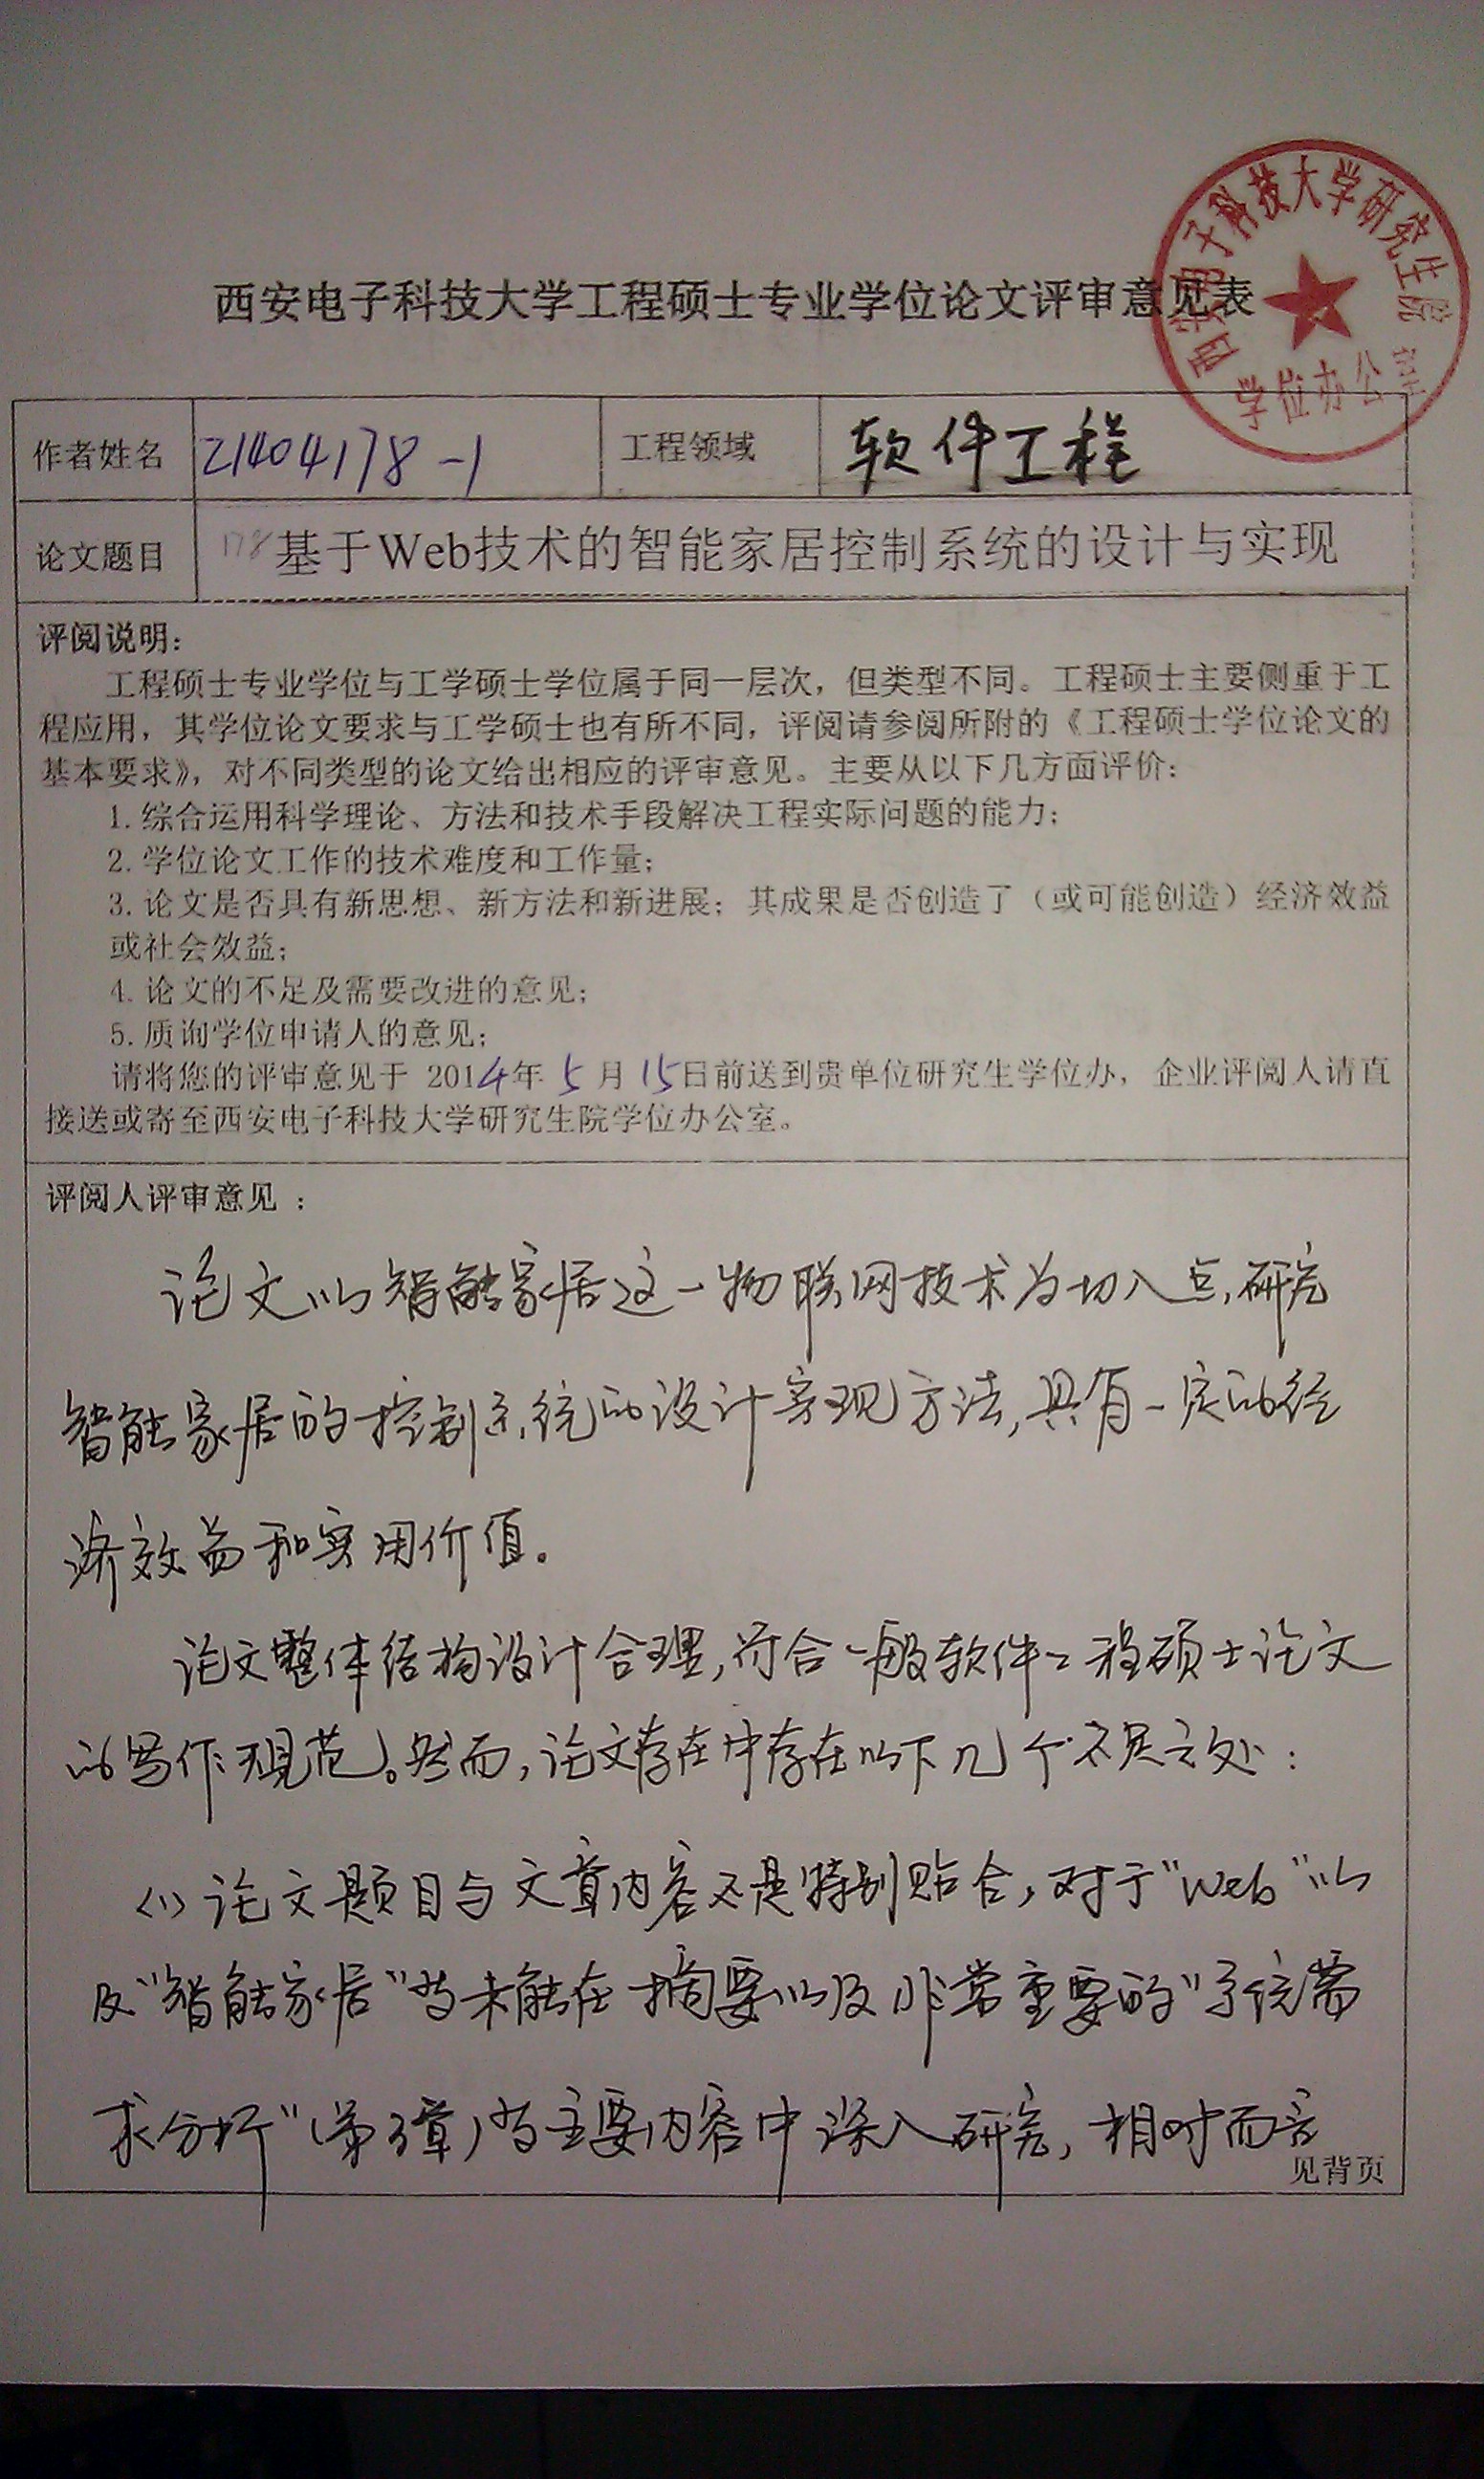 西安电子科技大学研究生院
学位办公室
西安电子科技大学工程硕士专业学位论文评审意见表
作者姓名 21404178-1 工程领域 软件工程
论文题目 178 基于Web技术的智能家居控制系统的设计与实现
评阅说明：
工程硕士专业学位与工学硕士学位属于同一层次，但类型不同。工程硕士主要侧重于工
程应用，其学位论文要求与工学硕士也有所不同，评阅请参阅所附的《工程硕士学位论文的
基本要求》，对不同类型的论文给出相应的评审意见。主要从以下几方面评价：
1. 综合运用科学理论、方法和技术手段解决工程实际问题的能力；
2. 学位论文工作的技术难度和工作量；
3. 论文是否具有新思想、新方法和新进展；其成果是否创造了（或可能创造）经济效益
或社会效益；
4. 论文的不足及需要改进的意见；
5. 质询学位申请人的意见；
请将您的评审意见于 2014年 5 月 15日前送到贵单位研究生学位办，企业评阅人请直
接送或寄至西安电子科技大学研究生院学位办公室。
评阅人评审意见：
论文以智能家居这一物联网技术为切入点,研究
智能家居的控制系统的设计实现方法,具有一定的经
济效益和实用价值。
论文整体结构设计合理,符合一般软件工程硕士论文
的写作规范。然而,论文存在中存在以下几个不足之处：
(1) 论文题目与文章内容不是特别贴合,对于"Web"以
及"智能家居"等未能在摘要以及非常重要的"系统需
求分析"(第3章)等主要内容中深入研究,相对而言
见背页